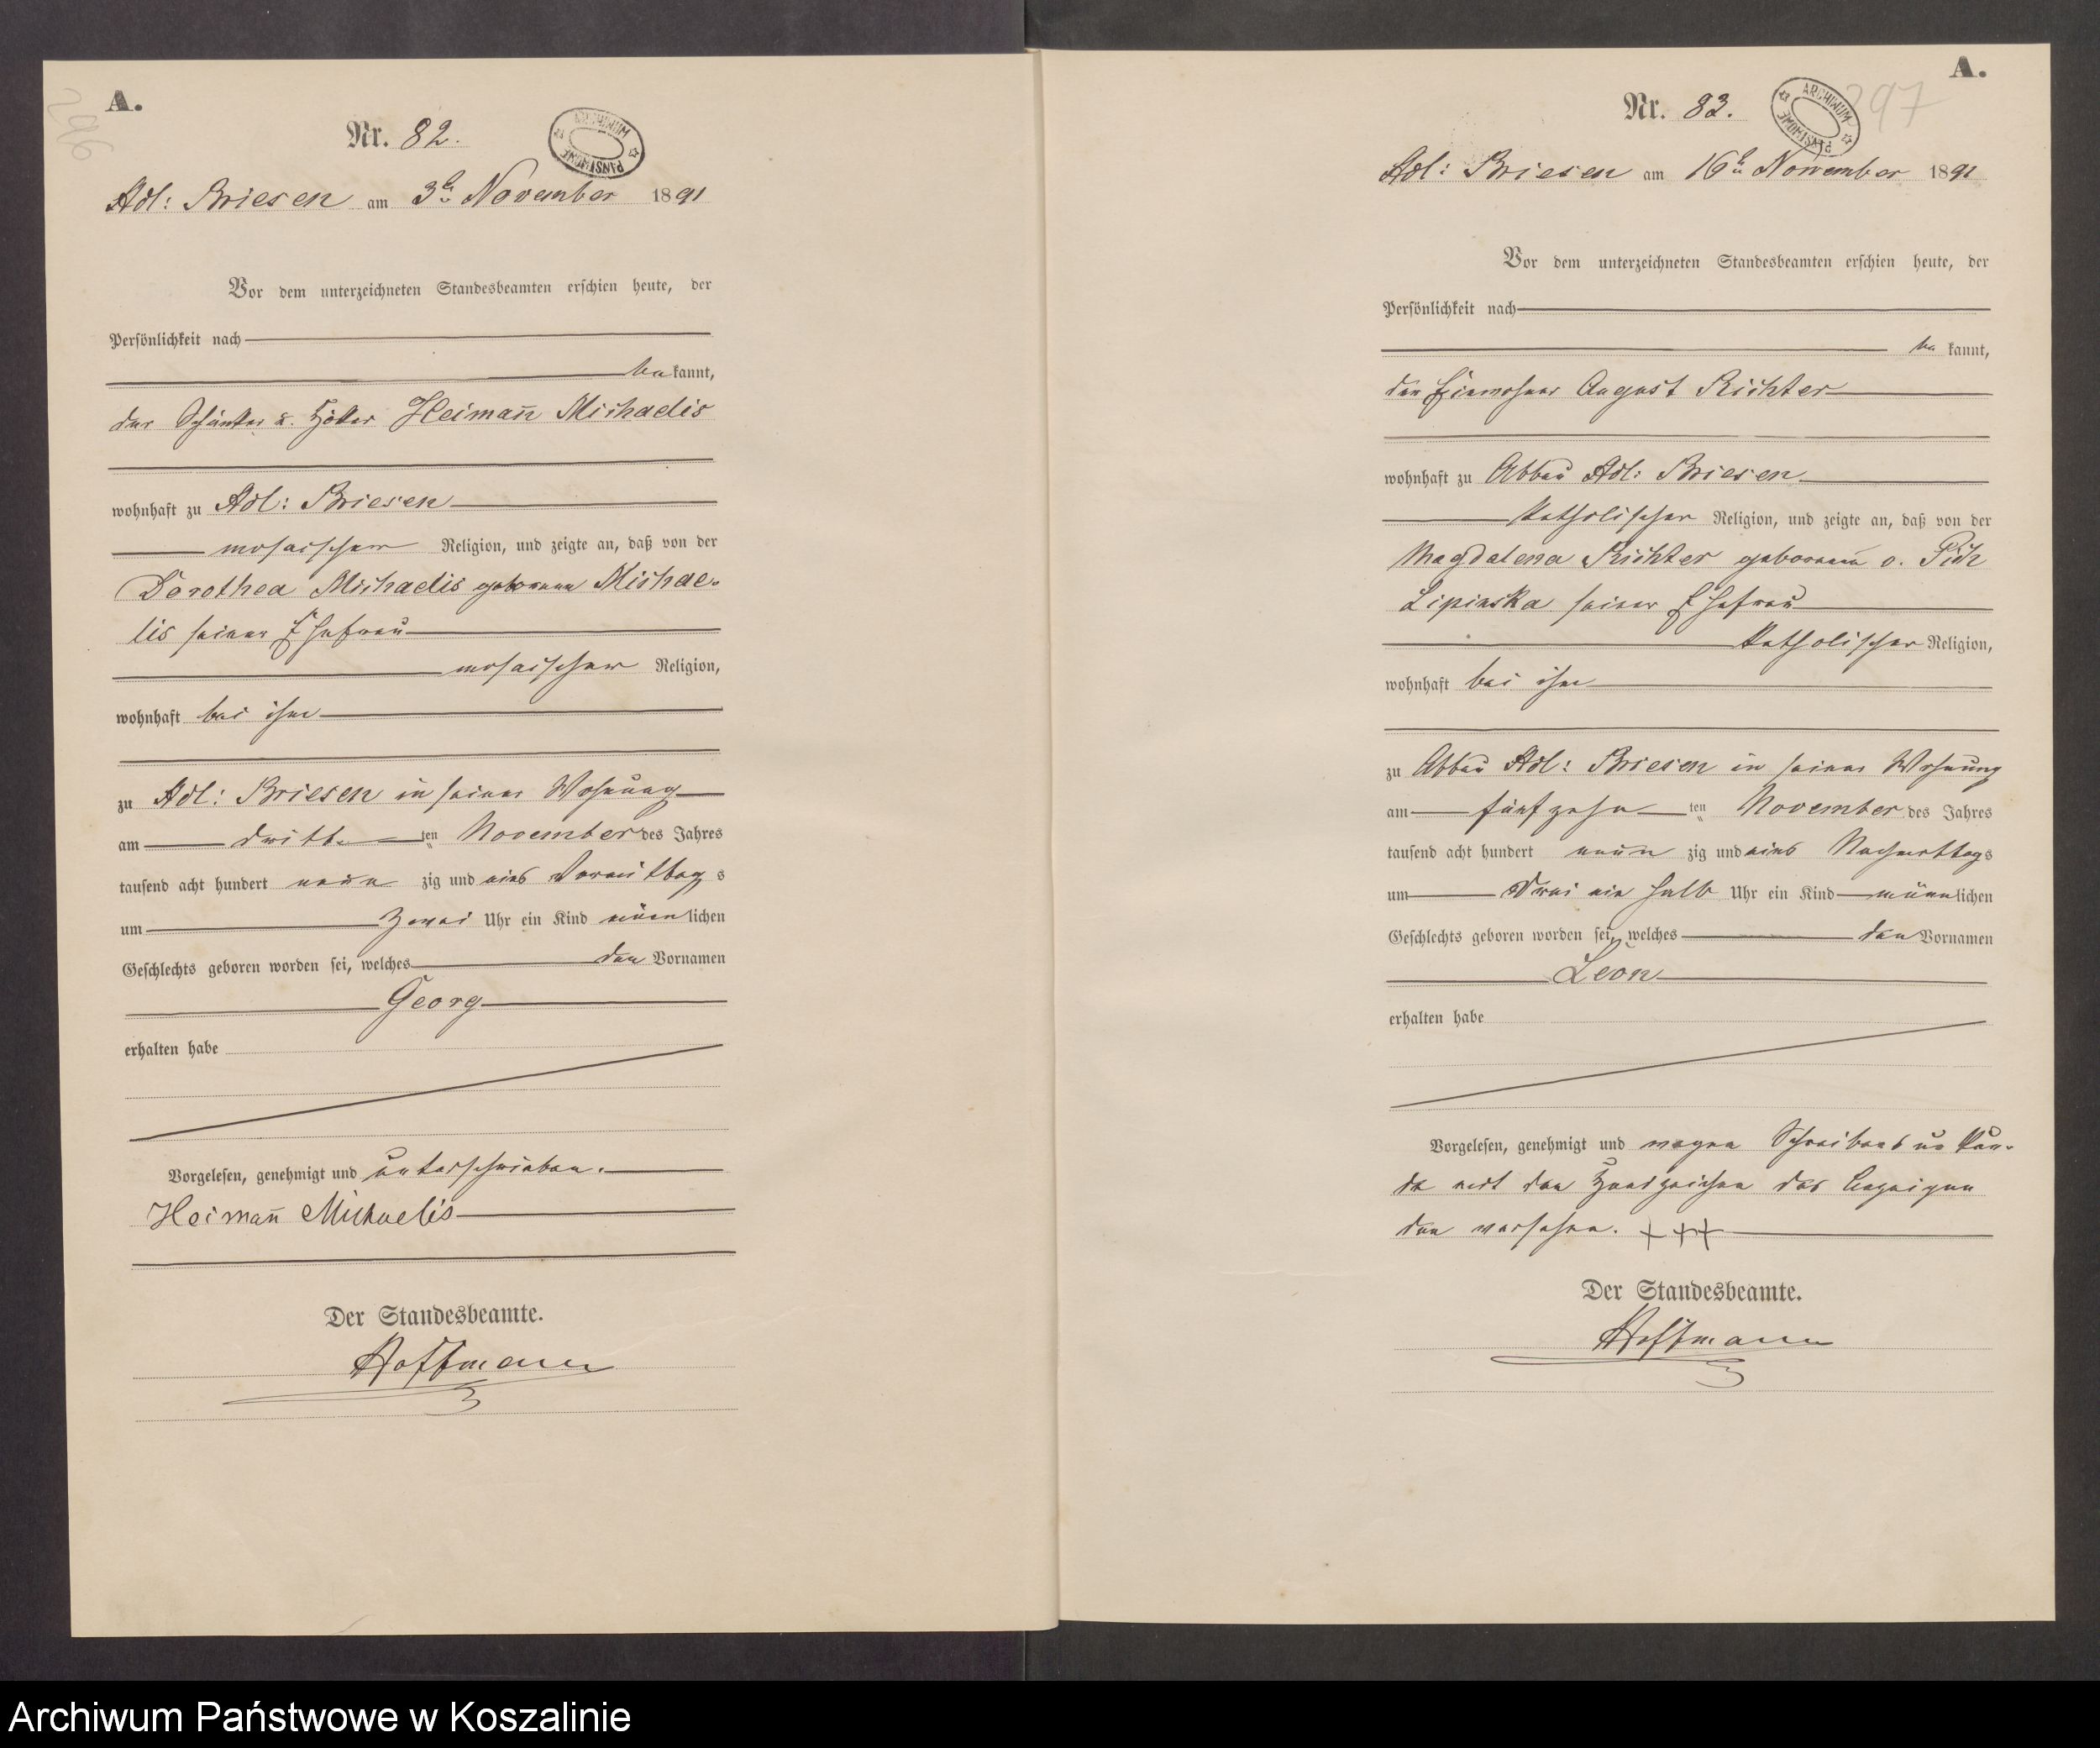 A.
Nr. 82.
ARCHIWUM PAŃSTWOWE
Adl: Briesen am 3te November 1891
Vor dem unterzeichneten Standesbeamten erschien heute, der
Persönlichkeit nach
be kannt,
der Schänker u. Höker Heimañ Michaelis
wohnhaft zu Adl: Briesen
mosaischer Religion, und zeigte an, daß von der
Dorothea Michaelis geborenen Michae-
lis seiner Ehefrau
mosaischer Religion,
wohnhaft bei ihm
zu Adl: Briesen in seiner Wohnung
am dritte ten November des Jahres
tausend acht hundert neun zig und eins Vormittag s
um zwei Uhr ein Kind männ lichen
Geschlechts geboren worden sei, welches den Vornamen
Georg
erhalten habe
Vorgelesen, genehmigt und unterschrieben.
Heimañ Michaelis
Der Standesbeamte.
Hoffmann
A.
297
Nr. 83.
ARCHIWUM PAŃSTWOWE
Adl: Briesen am 16te November 1891
Vor dem unterzeichneten Standesbeamten erschien heute, der
Persönlichkeit nach
be kannt,
der Einwohner August Richter
wohnhaft zu Abbau Adl: Briesen
Katholischer Religion, und zeigte an, daß von der
Magdalena Richter geborenen v.
Lipinska seiner Ehefrau
Katholischer Religion,
wohnhaft bei ihm
zu Abbau Adl: Briesen in seiner Wohnung
am fünfzehn ten November des Jahres
tausend acht hundert neun zig und eins Nachmittag s
um Drei ein halb Uhr ein Kind männ lichen
Geschlechts geboren worden sei, welches den Vornamen
Leon
erhalten habe
Vorgelesen, genehmigt und wegen Schreibens un Kun-
de mit dem Handzeichen des Anzeigen
den versehen. +++
Der Standesbeamte.
Hoffmann
Archiwum Państwowe w Koszalinie